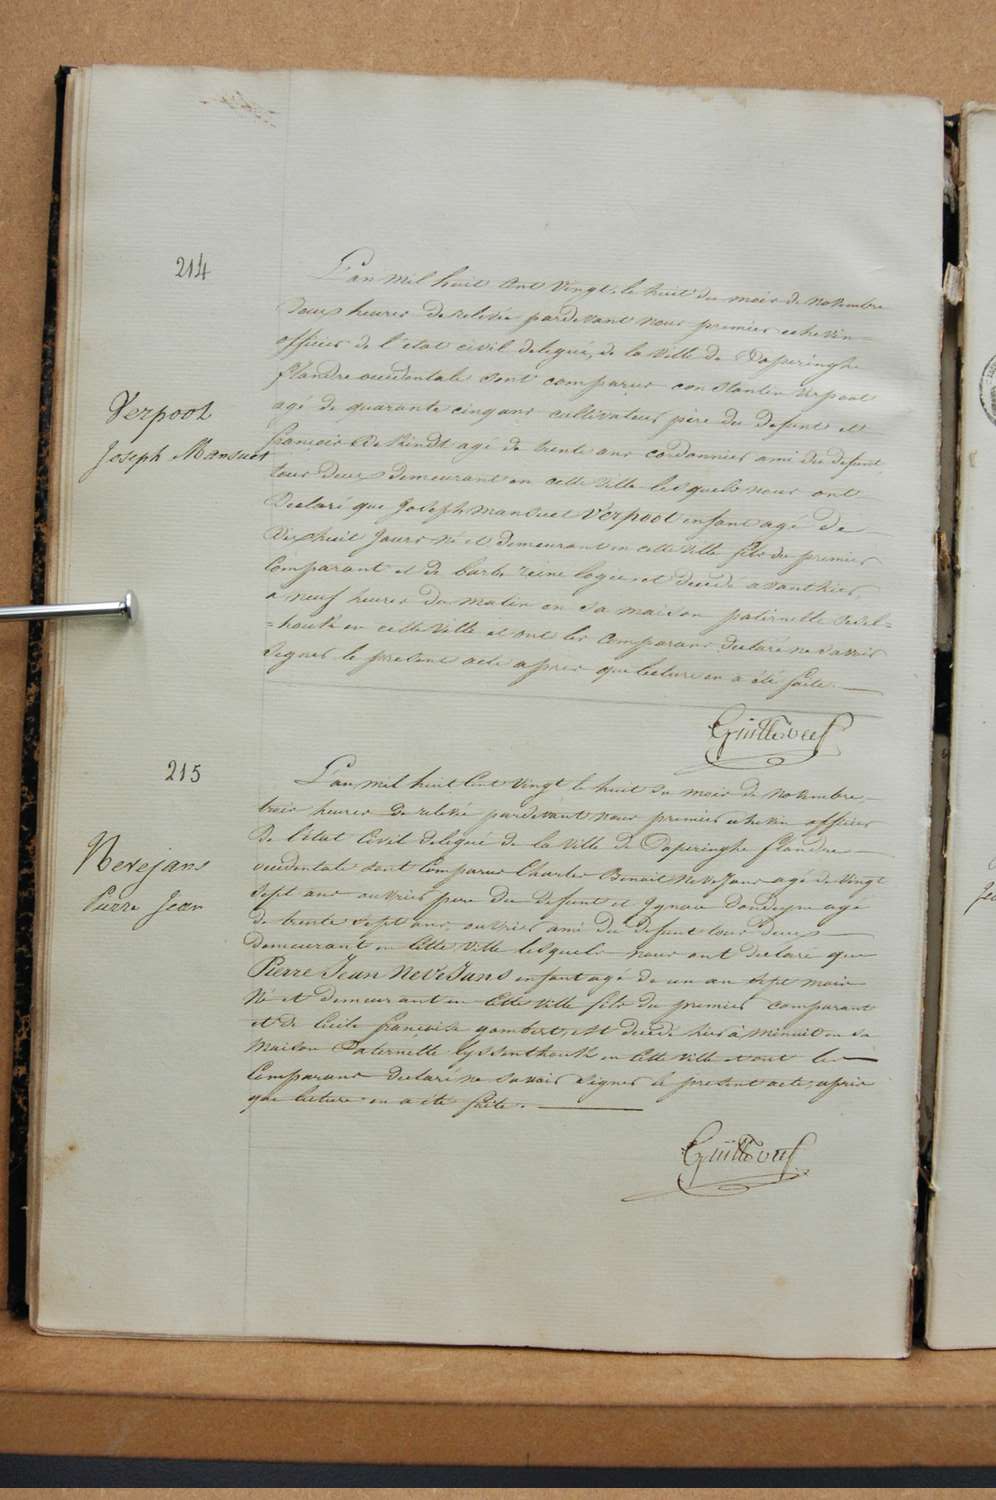 214
Verpoot
Joseph Mansuet
L'an mil huit cent vingt, le huit du mois de novembre
deux heures de relevée pardevant nous premier echevin
officier de l'état civil delegué, de la ville de Poperinghe
flandre occidentale sont comparus constantin verpoot
agé de quarante cinq ans cultivateur père du defunt et
françois de Rindt agé de trente ans cordonnier ami du defunt
tous deux demeurant en cette ville lesquels nous ont
declaré que Joseph mansuet Verpoot enfant agé de
dixhuit Jours né et demeurant en cette ville fils du premier
Comparant et de barbe reine logie est decedé avanthier,
a neuf heures du matin en sa maison paternelle
=houck en cette ville et ont les comparans declaré ne savoir
signer le present acte apres que lecture en a été faite.
Guilleveel
215
Nevejans
Pierre Jean
L'an mil huit Cent vingt le huit du mois de novembre,
trois heures de relevée pardevant nous premier echevin officier
de l'état Civil delegué de la ville de Poperinghe flandre
occidentale sont Comparus Charles Benoit NeveJans agé de vingt
sept ans ouvrier pere du defunt et Ignace Dondeyne agé
de trente sept ans, ouvrier ami du defunt tous deux
demeurant en cette ville lesquels nous ont declaré que
Pierre Jean NeveJans enfant agé de un an sept mois
Né et demeurant en cette ville fils du premier comparant
et de Cecile françoise gombert, est decedé hier à minuit en sa
maison Paternelle en cette ville et ont les
Comparans declaré ne savoir signer le present acte, apres
que lecture en a été faite.
Guilleveel